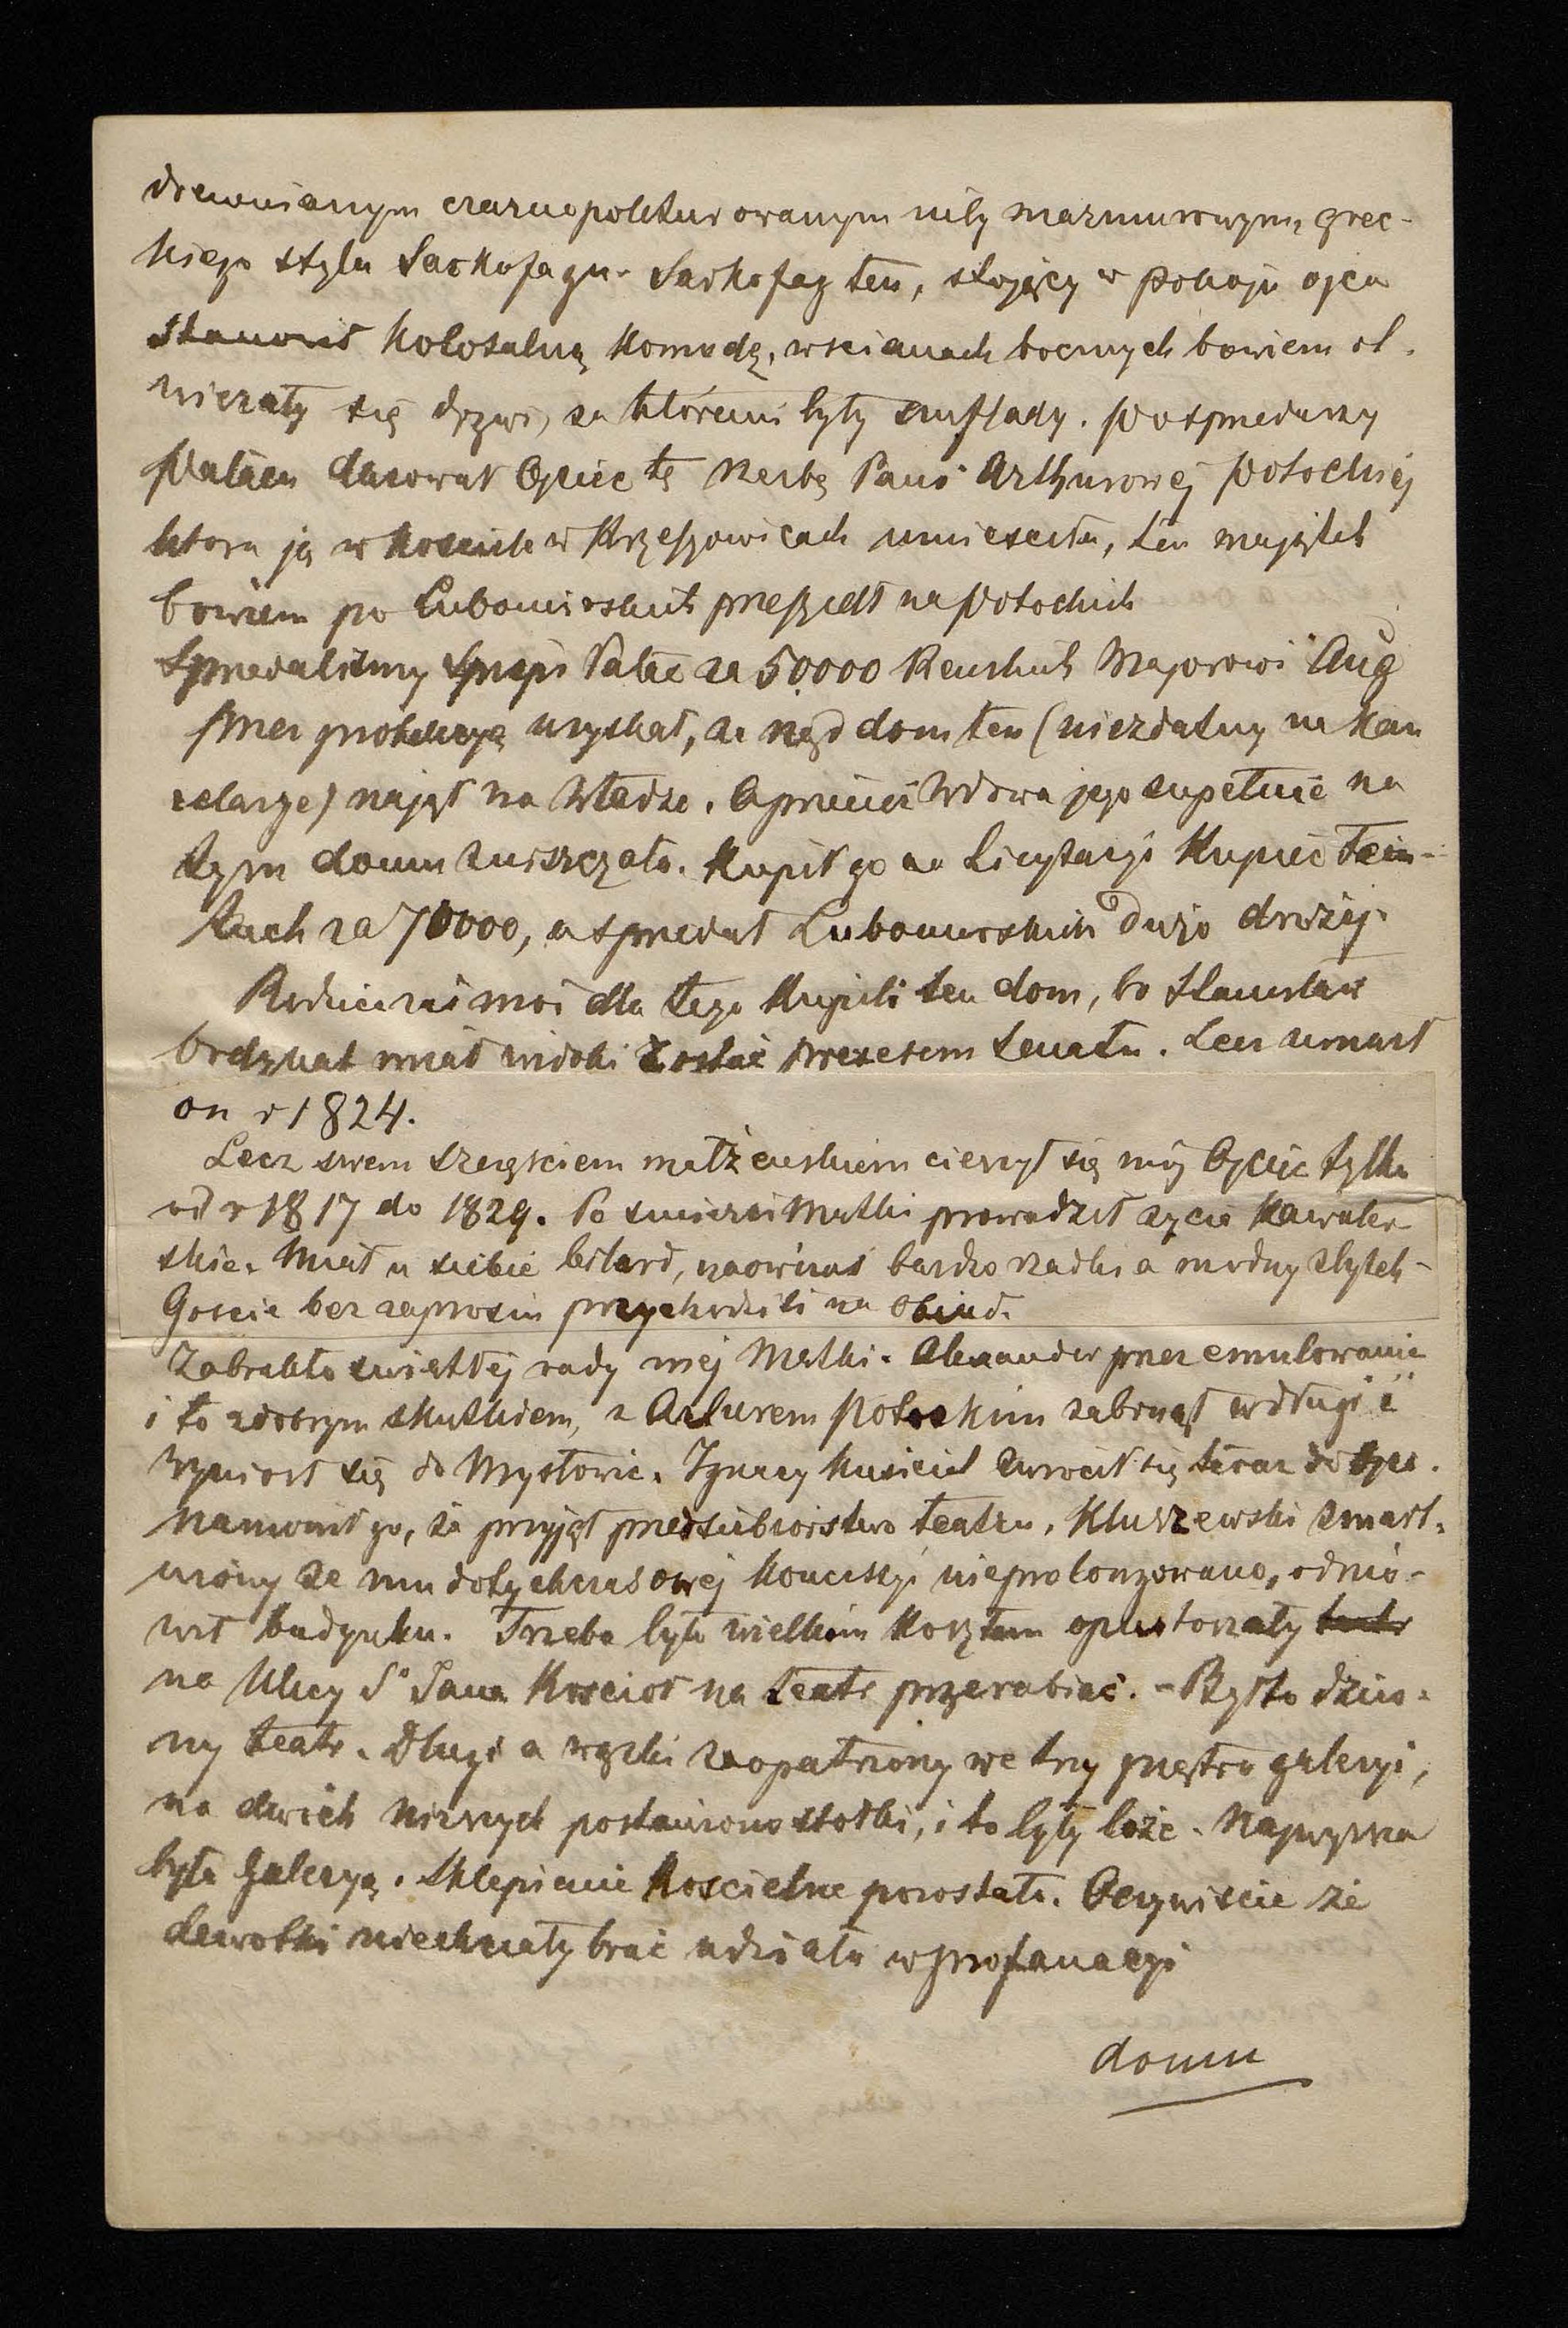 drewnianym czarno politurowanym niby marmurowym, grec-
kiego stylu Sarkofagu. Sarkofag ten, stojący w pokoju ojca
stanowił kolosalną komodę, w scianach bocznych bowiem ot-
wierały się drzwi, za któremi były szuflady. Po sprzedaży
Pałacu darował Ojciec tę rzeźbę Pani Arthurowej Potockiej
która ją w kosciele w Krzeszowicach umiesciła, ten majątek
bowiem po Lubomirskich przeszedł na Potockich
Sprzedalismy Spiski Pałac za 50000 Reńskich Majorowi Aug
przez protekcyą uzyskał, że rząd dom ten (niezdatny na kan
celarye) najął na Władze. Oprócz Wdowa jego zupełnie na
tym domu zniszczała. Kupił go na Licytacyi Kupiec Fein-
tuch za 70000, a sprzedał Lubomirskich dużo drożej.
Rodzice zaś moi dla tego kupili ten dom, bo Stanisław
Wodzicki miał widoki zostać prezesem Senatu. Lecz umarł
on r 1824.
Lecz swem szczęściem małżeńskiem cieszył się mój Ojciec tylko
od r 1817 do 1829. Po smierci Matki prowadził życie kawaler-
skie. Miał u siebie bilard, naówczas bardzo rzadki a modny zbytek-
Goscie bez zaprosin przychodzili na obiad.
Zabrakło światłej rady mej Matki. Alexander przez emulowanie
i to z dobrym skutkiem, z Arturem Potockim zabrnął w długi i
wyniosł się do Mysłowic. Ignacy kusiciel zwrocił się teraz do Ojca.
Namowił go, że przyjął przedsiębiorstwo teatru. Kluszewski zmart-
wiony że mu dotychczasowej koncesyi nieprolongowano, odmó-
wił budynku. Trzeba było wielkim kosztem opustoszały teatr
na Ulicy Sº Jana Koscioł na teatr przerabiać. - Był to dziw-
ny teatr. Długi a wązki zaopatrzony we trzy piętra galeryi,
na dwóch niższych postawiono stołki, i to były loże. Najwyższa
była Galeryą. Sklepienie koscielne pozostało. Oczywiscie że
dewotki niechciały brać udziału w profanacyi
domu